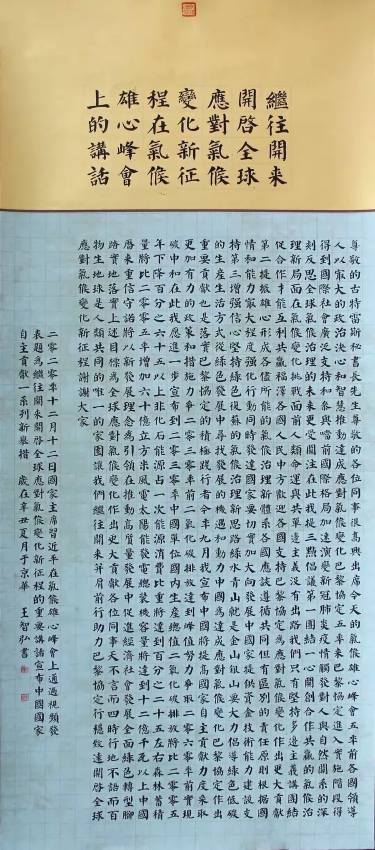 繼往開来
開啓全球
應對氣候
變化新征
程在氣候
雄心峰會
上的講話
尊敬的古特雷斯秘書長先生尊敬的各位同事很高興出席今天的氣候雄心峰會五年前各國領導
人以最大的政治決心和智慧推動達成應對氣候變化巴黎協定五年来巴黎協定進入實施階段得
得到國際社會廣泛支持和參與當前國際格局加速演變新冠肺炎疫情觸發對人與自然關系的深
刻反思全球氣候治理的未来更受關注在此我提三點倡議第一團結一心開創合作共贏的氣候治
理新局面在氣候變化挑戰面前人類命運與共單邊主義没有出路我們只有堅持多邊主義講團結
促合作才能互利共贏福澤各國人民中方歡迎各國支持巴黎協定為應對氣候變化作出更大貢獻
第二提振雄心形成各盡所能的氣候治理新體系各國應該遵循共同但有區別的責任原則根據國
情和能力最大程度強化行動同時發達國家要切實加大向發展中國家提供資金技術能力建設支
持第三增強信心堅持綠色復蘇的氣候治理新思路綠水青山就是金山銀山要大力倡導綠色低碳
的生産生活方式從綠色發展中尋找發展的機遇和動力中國為達成應對氣候變化巴黎協定作出
重要貢獻也是落實巴黎協定的積極踐行者今年九月我宣布中國將提高國家自主貢獻力度采取
更加有力的政策和措施力爭二零三零年前二氧化碳排放達到峰值努力爭取二零六零年前實現
碳中和在此我願進一步宣布到二零三零年中國單位國内生産總值二氧化碳排放將比二零零五
年下降百分之六十五以上非化石能源消費比重將達到百分之二十五左右森林蓄積
量將比二零零五年增加六十億立方米風電太陽能發電總装機容量將達到十二億千瓦以上中國
歷来重信守諾將以新發展理念為引領在推動高質量發展中促進經濟社會發展全面綠色轉型腳
踏實地落實上述目標為全球應對氣候變化作出更大貢獻各位同事天不言而四時行地不語而百
物生地球是人類共同的唯一的家園讓我們繼往開来并肩前行助力巴黎協定行穩致遠開啓全球
應對氣候變化新征程謝謝大家
二零二零年十二月十二日國家主席習近平在氣候雄心峰會上通過視頻發
表題為繼往開来開啓全球應對氣候變化新征程的重要講話宣布中國國家
自主貢獻一系列新舉措 歲在辛丑夏月于京華 王智弘書